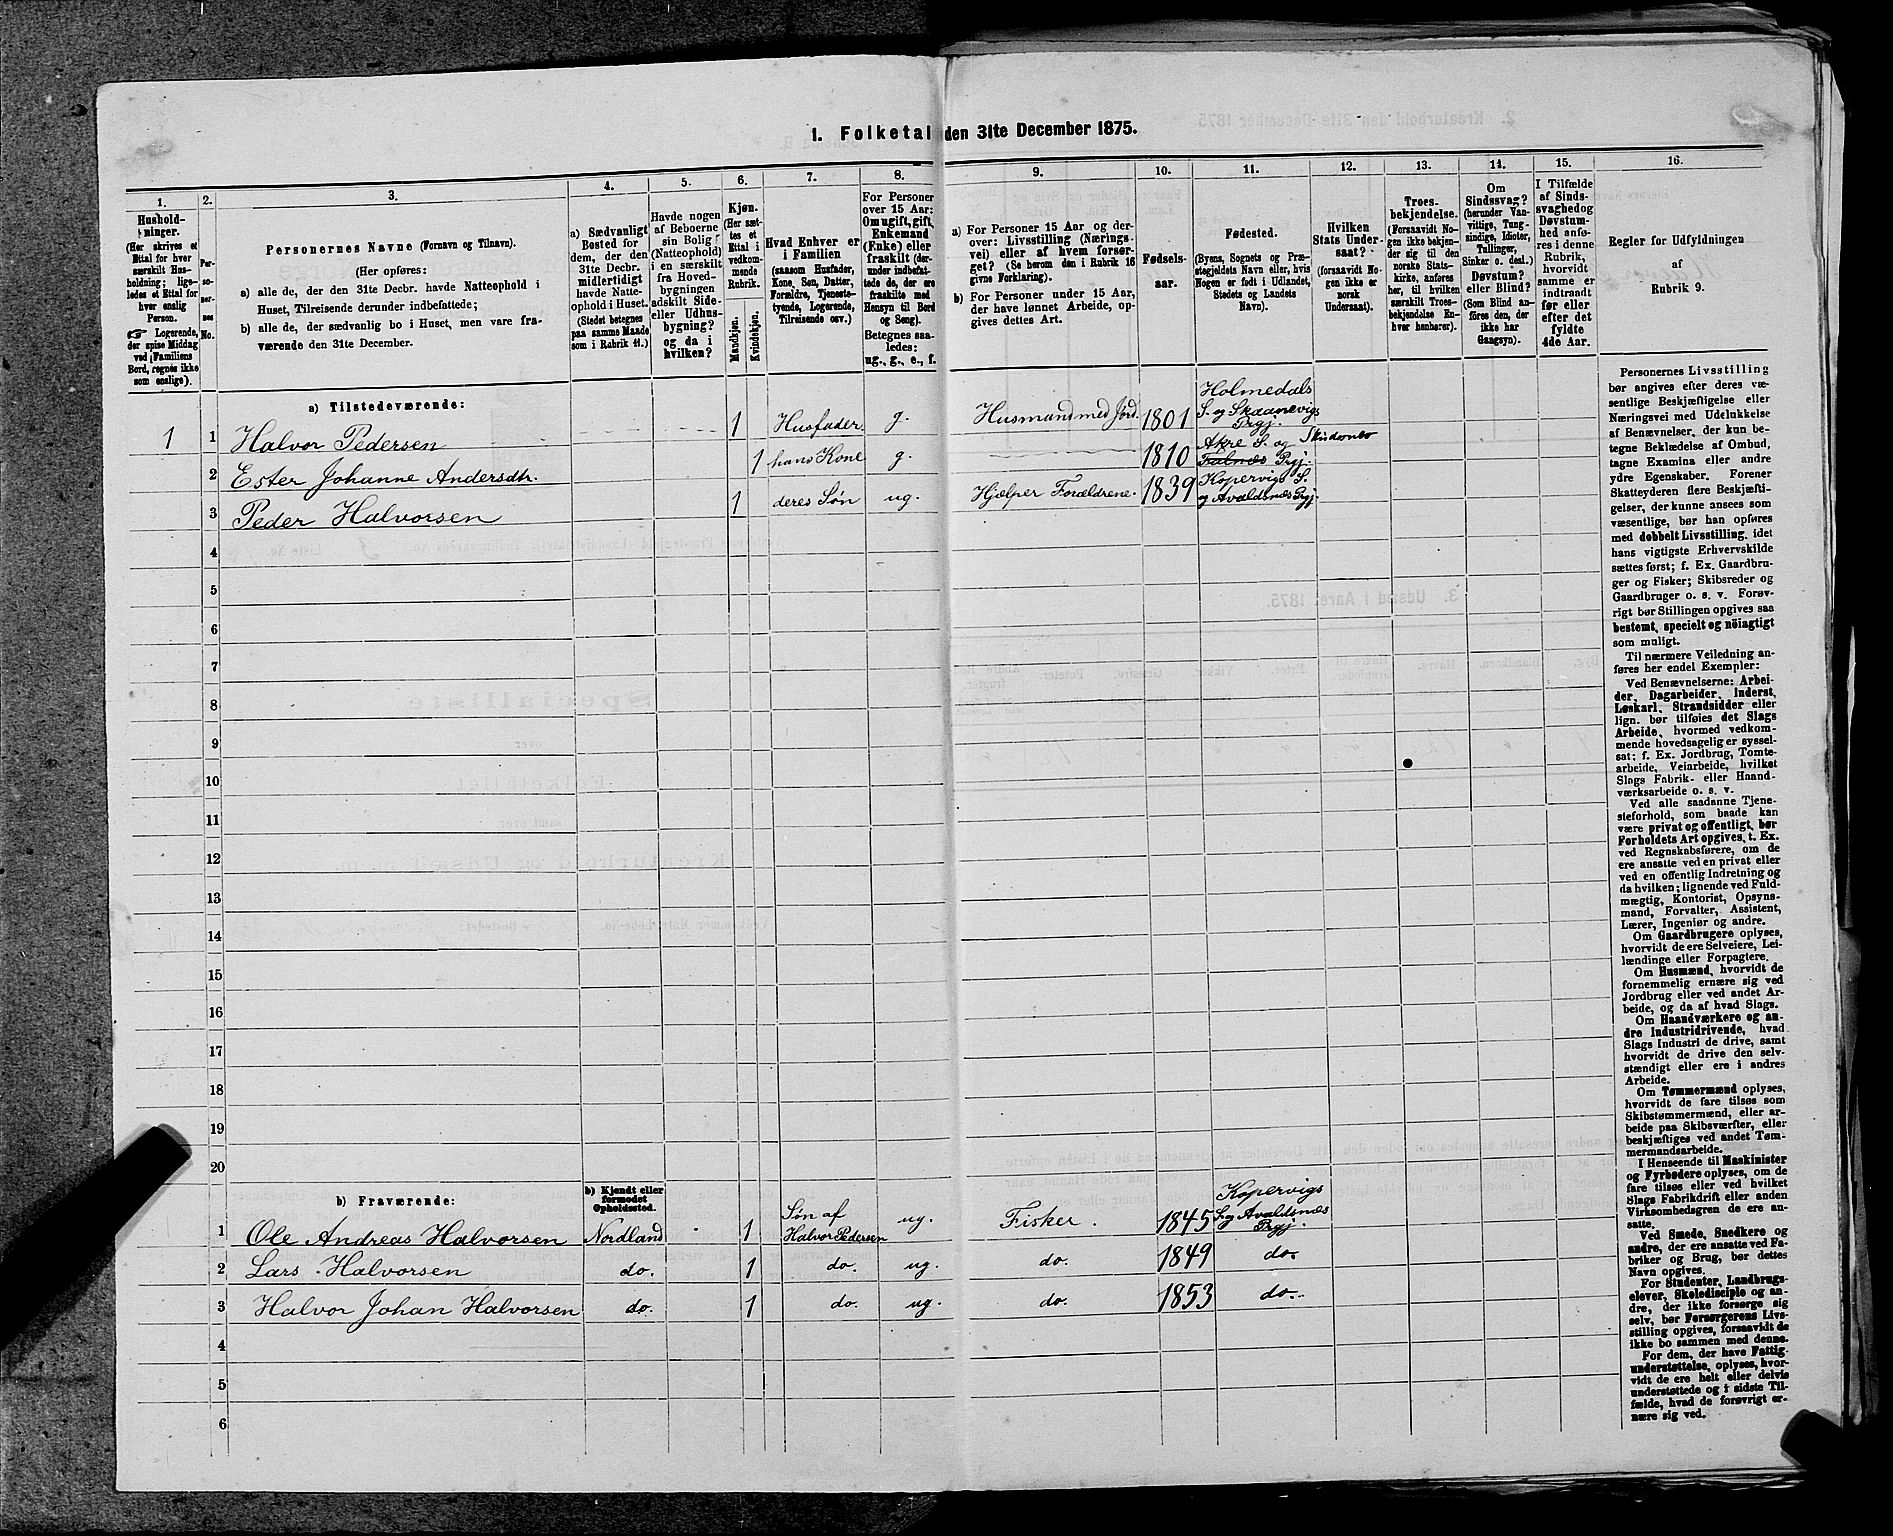 1. Folketal den 31te December 1875.
1.
2.
3.
4.
5.
6.
7.
8.
9.
10.
11.
12.
13.
14.
15.
16.
Hushold-
ninger.
(Her skrives et
Ettal for hver
særskilt Hus-
holdning; lige-
ledes et Ettal for
hver enslig
Person.
☞ Logerende,
der spise Middag
ved Familiens
Bord, regnes ikke
som enslige).
Per-
so-
ner-
nes
No.
Personernes Navne (Fornavn og Tilnavn).
(Her opføres:
a) alle de, der den 31te Decbr. havde Natteophold i
Huset, Tilreisende derunder indbefattede;
b) alle de, der sædvanlig bo i Huset, men vare fra-
værende den 31te December.
a) Sædvanligt
Bosted for
dem, der den
31te Decbr.
midlertidigt
havde Natte-
ophold i Huset.
(Stedet betegnes
paa samme Maade
som i Rubrik 11.)
Havde nogen
af Beboerne
sin Bolig
(Natteophold)
i en særskilt
fra Hoved-
bygningen
adskilt Side-
eller Udhus-
bygning?
og da i
hvilken?
Kjøn.
(Her sæt-
tes et
Ettal i
vedkom-
mende
Rubrik.
Mandkjøn.
Kvindekjøn.
Hvad Enhver er
i Familien
(saasom Husfader,
Kone, Søn, Datter,
Forældre, Tjeneste-
tyende, Logerende,
Tilreisende osv.)
For Personer
over 15 Aar:
Om ugift, gift,
Enkemand
(Enke) eller
fraskilt (der-
under indbefat-
tede de, der ere
fraskilte med
Hensyn til Bord
og Seng).
Betegnes saa-
ledes:
ug., g., e., f.
a) For Personer 15 Aar og der-
over: Livsstilling (Nærings-
vei) eller af hvem forsør-
get? (Se herom den i Rubrik 16
givne Forklaring).
b) For Personer under 15 Aar,
der have lønnet Arbeide, op-
gives dettes Art.
Fødsels-
aar.
Fødested.
(Byens, Sognets og Præ-
stegjeldets Navn eller, hvis
Nogen er født i Udlandet,
Stedets og Landets
Navn).
Hvilken
Stats Under-
saat?
(forsaavidt No-
gen ikke er
norsk
Undersaat).
Troes-
bekjendelse.
(Forsaavidt No-
gen ikke bekjen-
der sig til den
norske Stats-
kirke, anføres
her, til hvilken
særskilt Troes-
bekjendelse En-
hver henhører).
Om
Sindssvag?
(herunder Van-
vittige, Tung-
sindige, Idioter,
Tullinger,
Sinker o. desl.)
Døvstum?
eller Blind?
(Som Blind an-
føres den, der
ikke har
Gangsyn).
I Tilfælde
af Sinds-
svaghed og
Døvstum-
hed anfø-
res i denne
Rubrik,
hvorvidt
samme er
indtraadt
før eller
efter det
fyldte
4de Aar.
Regler for Udfyldningen
af
Rubrik 9.
a) Tilstedeværende:
1 1 Halvor Pedersen 1 Husfader g. Husmand med Jord. 1801 Holmedals
S. og Skaanevigs
Prgj.
2 Ester Johanne Andersdtr. 1 hans Kone g. 1810 Akre S. og Skudesnes
Falnæs Prgj.
3 Peder Halvorsen 1 deres Søn ug. Hjælper Forældrene. 1839 Kopervigs S.
og Avaldsnæs Prgj.
4
5
6
7
8
9
10
11
12
13
14
15
16
17
18
19
20
b) Fraværende:
b) Kjendt eller
formodet
Opholdssted.
1 Ole Andreas Halvorsen Nordland 1 Søn af
Halvor Pedersen ug. Fisker. 1845 Kopervigs
S. og Avaldsnæs
Prgj.
2 Lars Halvorsen do. 1 do. ug. do. 1849 do.
3 Halvor Johan Halvorsen do. 1 do. ug. do. 1853 do.
4
5
6
Personernes Livsstilling
bør angives efter deres væ-
sentlige Beskjæftigelse eller
Næringsvei med Udelukkelse
af Benævnelser, der kun be-
tegne Beklædelse af Ombud,
tagne Examina eller andre
ydre Egenskaber. Forener
Skatteyderen flere Beskjæfti-
gelser, der kunne ansees som
væsentlige, bør han opføres
med dobbelt Livsstilling, idet
hans vigtigste Erhvervskilde
sættes først; f. Ex. Gaardbru-
ger og Fisker; Skibsreder og
Gaardbruger o. s. v. Forøv-
rigt bør Stillingen opgives saa
bestemt, specielt og nøiagtigt
som muligt.
Til nærmere Veiledning an-
føres her endel Exempler:
Ved Benævnelserne: Arbei-
der, Dagarbeider, Inderst,
Løskarl, Strandsidder eller
lign. bør tilføies det Slags
Arbeide, hvormed vedkom-
mende hovedsagelig er syssel-
sat; f. Ex. Jordbrug, Tomte-
arbeide, Veiarbeide, hvilket
Slags Fabrik- eller Haand-
værksarbeide o. s. v.
Ved alle saadanne Tjene-
steforhold, som baade kan
være privat og offentligt, bør
Forholdets Art opgives, t. Ex.
ved Regnskabsførere, om de
ere ansatte ved en privat eller
ved en offentlig Indretning og
da hvilken; lignende ved Fuld-
mægtig, Kontorist, Opsyns-
mand, Forvalter, Assistent,
Lærer, Ingeniør og andre.
Om Gaardbrugere oplyses,
hvorvidt de ere Selveiere, Lei-
lændinge eller Forpagtere.
Om Husmænd, hvorvidt de
fornemmelig ernære sig ved
Jordbrug eller ved andet Ar-
beide, og da af hvad Slags.
Om Haandværkere og an-
dre Industridrivende, hvad
Slags Industri de drive, samt
hvorvidt de drive den selv-
stændigt eller ere i andres
Arbeide.
Om Tømmermænd oplyses,
hvorvidt de fare tilsøs som
Skibstømmermænd, eller ar-
beide paa Skibsværfter, eller
beskjæftiges ved andet Tøm-
mermandsarbeide.
I Henseende til Maskinister
og Fyrbødere oplyses, om de
fare tilsøs eller ved hvilket
Slags Fabrikdrift eller anden
Virksomhedsgren de ere an-
satte.
Ved Smede, Snedkere og
andre, der ere ansatte ved Fa-
briker og Brug, bør dettes
Navn opgives.
For Studenter, Landbrugs-
elever, Skoledisciple og an-
dre, der ikke forsørge sig
selv, bør Forsørgerens Livs-
stilling opgives, forsaavidt de
ikke bo sammen med denne.
For dem, der have Fattig-
understøttelse, oplyses, hvor-
vidt de ere helt eller delvis
understøttede og i sidste Til-
fælde, hvad de forøvrigt er-
nære sig ved.